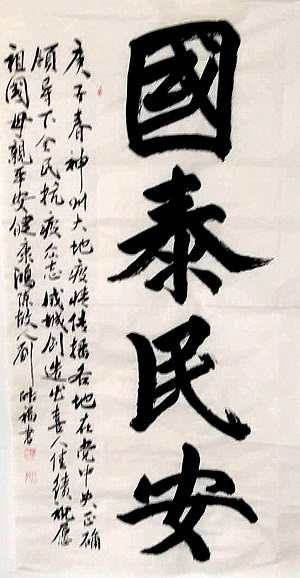 國泰民安
庚子春神州大地疫情传播各地在党中央正确
领导下全民抗疫众志成城创造出喜人佳绩祝愿
祖國母親平安健康鴻陈故人剑
书